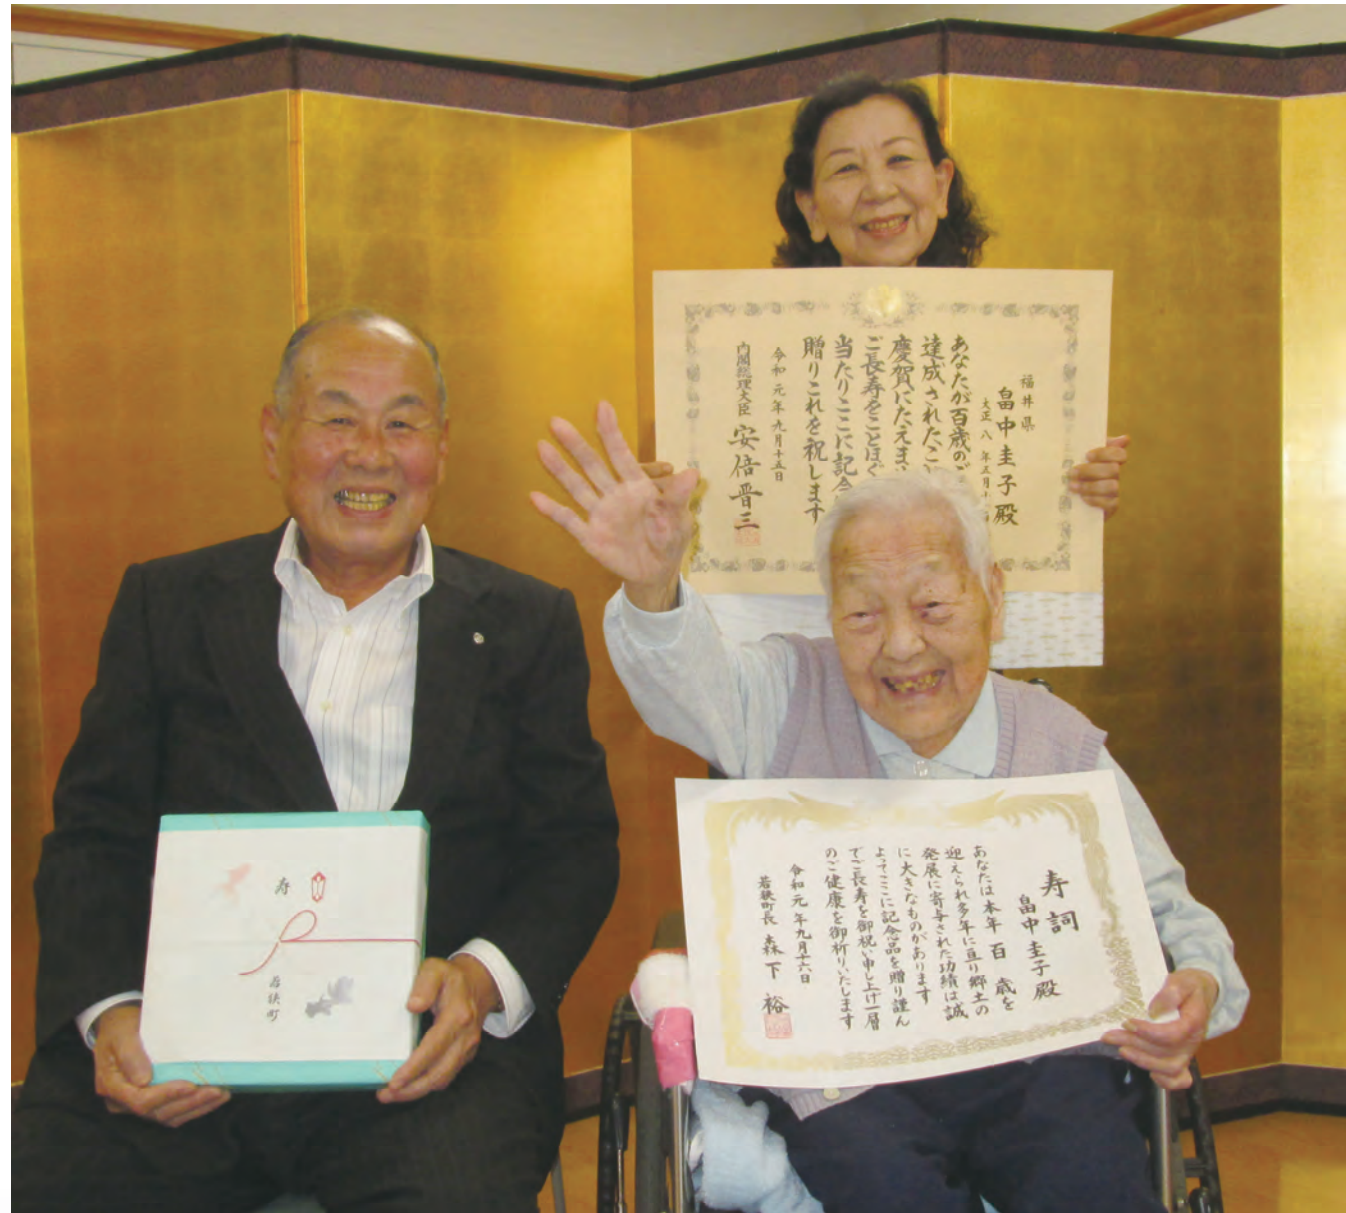 福井県
畠中圭子殿
大正八年五月十
あなたが百歳のご
達成されたこ
慶賀にたえま
ご長寿をことほぐ
当たりここに記念
贈りこれを祝します
令和元年九月十五日
内閣総理大臣 安倍晋三
寿
若狭町
寿詞
畠中圭子殿
あなたは本年百歳を
迎えられ多年に亘り郷土の
発展に寄与された功績は誠
に大きなものがあります
よってここに記念品を贈り謹ん
でご長寿を御祝い申し上げ一層
のご健康を御祈りいたします
令和元年九月十六日
若狭町長 森下裕